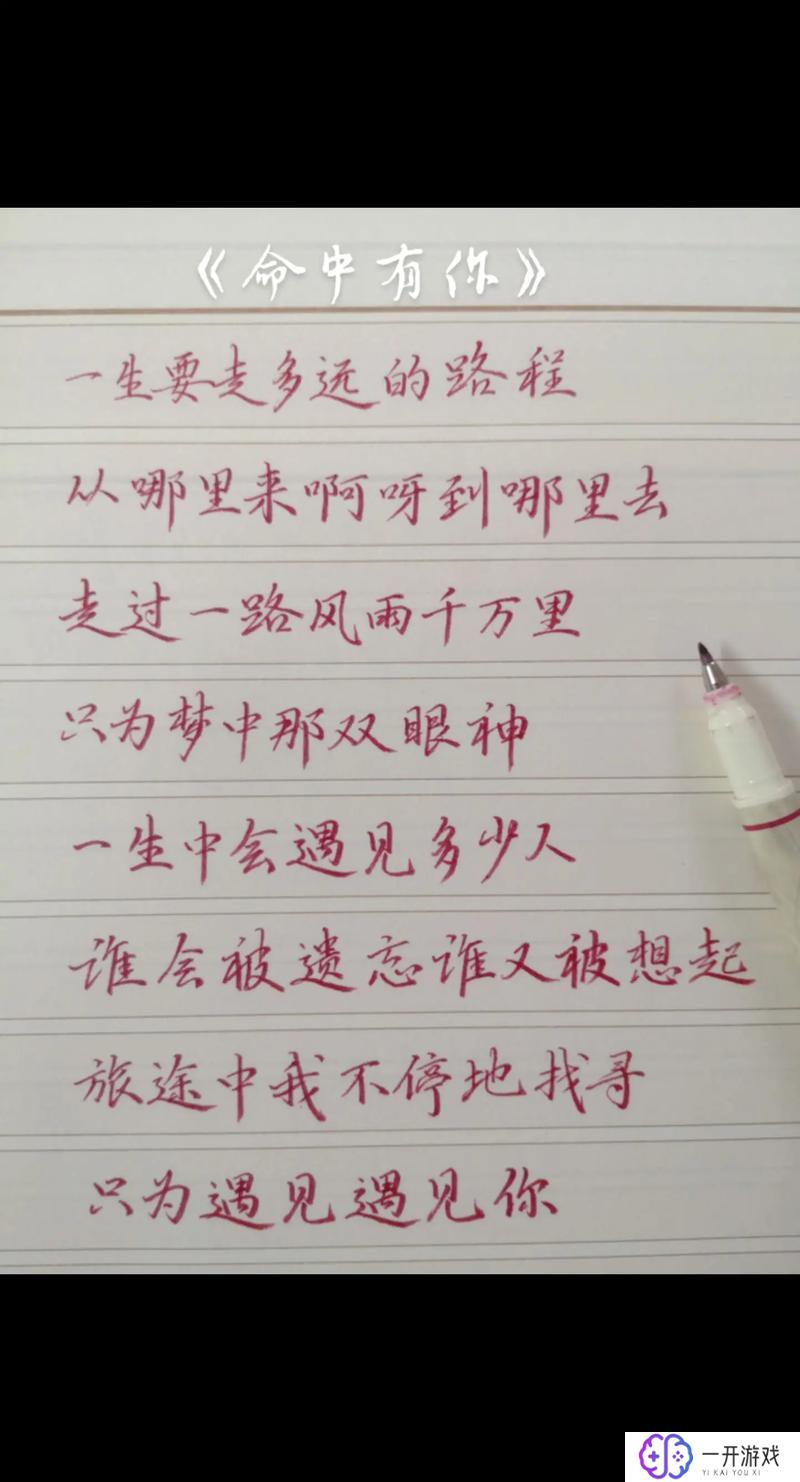 《命中有你》
一生要走多远的路程
从哪里来啊呀到哪里去
走过一路风雨千万里
只为梦中那双眼神
一生中会遇见多少人
谁会被遗忘谁又被想起
旅途中我不停地找寻
只为遇见遇见你
一开游戏
YI KAI YOU XI